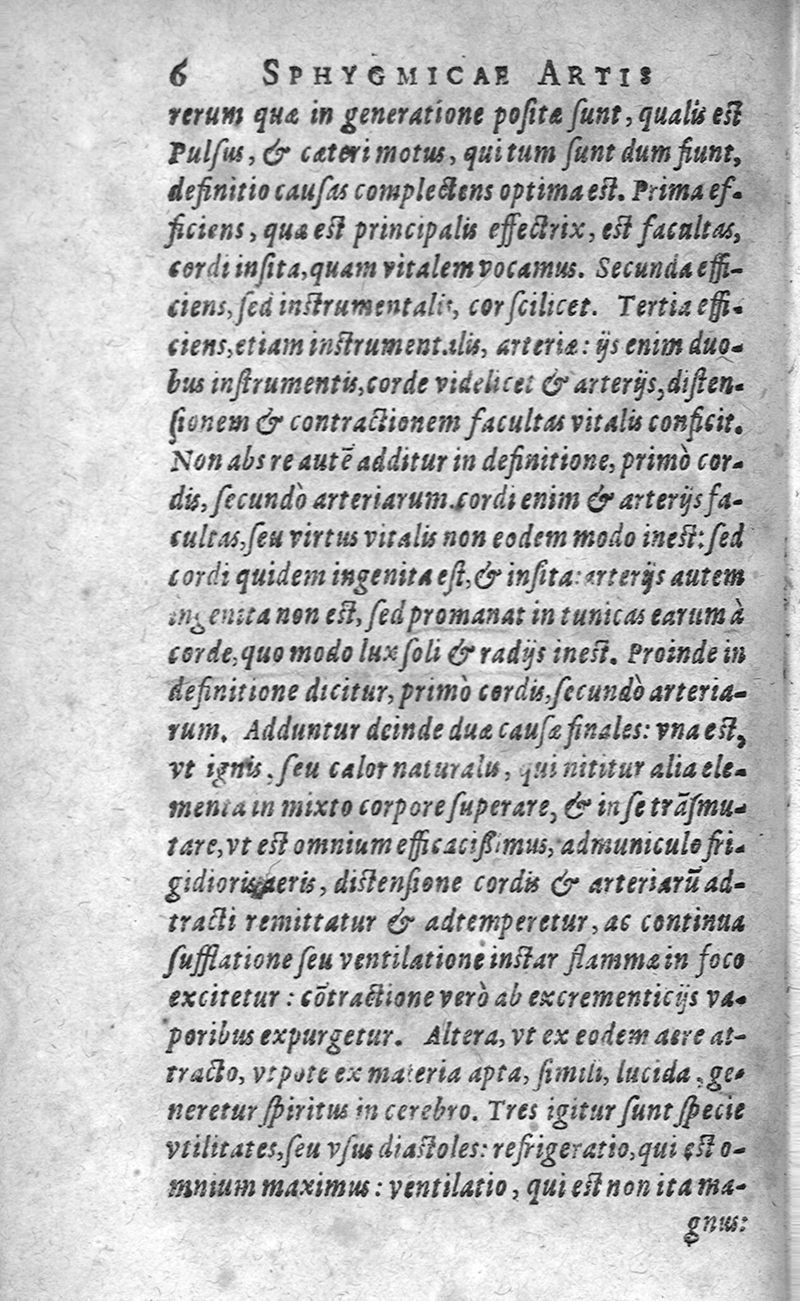 6 SPHYGMICAE ARTIS
rerum quæ in generatione poſitæ ſunt, qualis eſt
Pulſus, & cæteri motus, qui tum ſunt dum fiunt,
definitio cauſas complectens optima eſt. Prima ef-
ficiens, quæ eſt principalis effectrix, eſt facultas,
cordi inſita, quam vitalem vocamus. Secunda effi-
ciens, ſed inſtrumentalis, cor ſcilicet. Tertia effi-
ciens, etiam inſtrumentalis, arteriæ: ijs enim duo-
bus inſtrumentis, corde videlicet & arterijs, diſten-
ſionem & contractionem facultas vitalis conficit.
Non abs re autē additur in definitione, primò cor-
dis, ſecundò arteriarum. cordi enim & arterijs fa-
cultas, ſeu virtus vitalis non eodem modo ineſt: ſed
cordi quidem ingenita eſt, & inſita: arterijs autem
ingenita non eſt, ſed promanat in tunicas earum à
corde, quo modo lux ſoli & radijs ineſt. Proinde in
definitione dicitur, primò cordis, ſecundò arteria-
rum. Adduntur deinde duæ cauſæ finales: vna eſt,
vt ignis, ſeu calor naturalis, qui nititur alia ele-
menta in mixto corpore ſuperare, & in ſe trāſmu-
tare, vt eſt omnium efficaciſſimus, adminiculo fri-
gidioris aeris, diſtenſione cordis & arteriarū ad-
tracti remittatur & adtemperetur, ac continua
ſufflatione ſeu ventilatione inſtar flammæ in foco
excitetur: cōtractione verò ab excrementicijs va-
poribus expurgetur. Altera, vt ex eodem aere at-
tracto, vtpote ex materia apta, ſimili, lucida, ge-
neretur ſpiritus in cerebro. Tres igitur ſunt ſpecie
vtilitates, ſeu vſus diaſtoles: refrigeratio, qui eſt o-
mnium maximus: ventilatio, qui eſt non ita ma-
gnus: